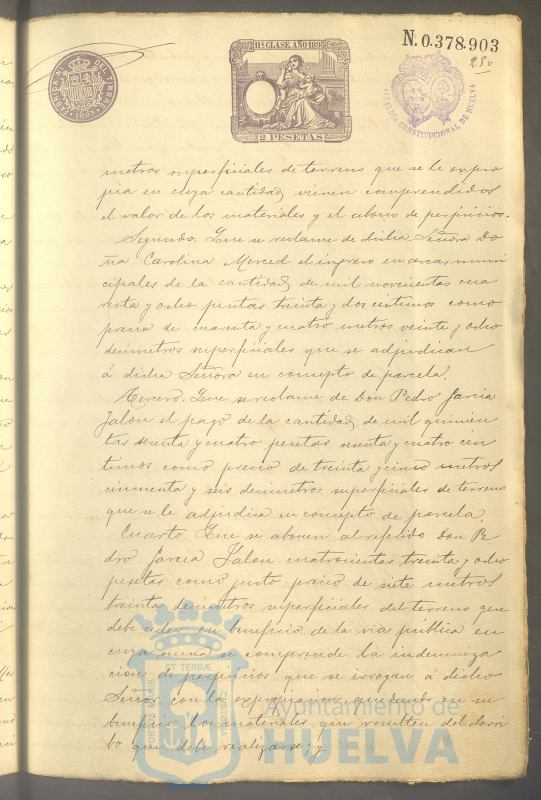 N.0.378.903
230
11ª CLASE. AÑO 1893
2 PESETAS
1893
ALCALDIA CONSTITUCIONAL DE HUELVA
metros superficiales de terreno que se le expro
pia en cuya cantidad vienen comprendidos
el valor de los materiales y el abono de perjuicios.
Segundo. Que se reclame de dicha Señora Do
ña Carolina Merced el ingreso en arcas muni
cipales de la cantidad de mil novecientas cua
renta y ocho pesetas treinta y dos centimos como
precio de cuarenta y cuatro metros veinte y ocho
decimetros superficiales que se adjudican
á dicha Señora en concepto de parcela.
Tercero. Que se reclame de Don Pedro Garcia
Jalon el pago de la cantidad de mil quinien
tas sesenta y cuatro pesetas sesenta y cuatro cen
timos como precio de treinta y cinco metros
cincuenta y seis decimetros superficiales de terreno
que se le adjudica en concepto de parcela.
Cuarto. Que se abonen al referido Don Pe
dro Garcia Jalon cuatrocientas treinta y ocho
pesetas como justo precio de siete metros
treinta decimetros superficiales del terreno que
debe ceder en beneficio de la via pública en
cuya suma se comprende la indemniza
cion de perjuicios que se irrogan á dicho
Señor con la expropiacion quedando en su
beneficio los materiales que resulten del derri
bo que debe realizarse; y
Ayuntamiento de
HUELVA